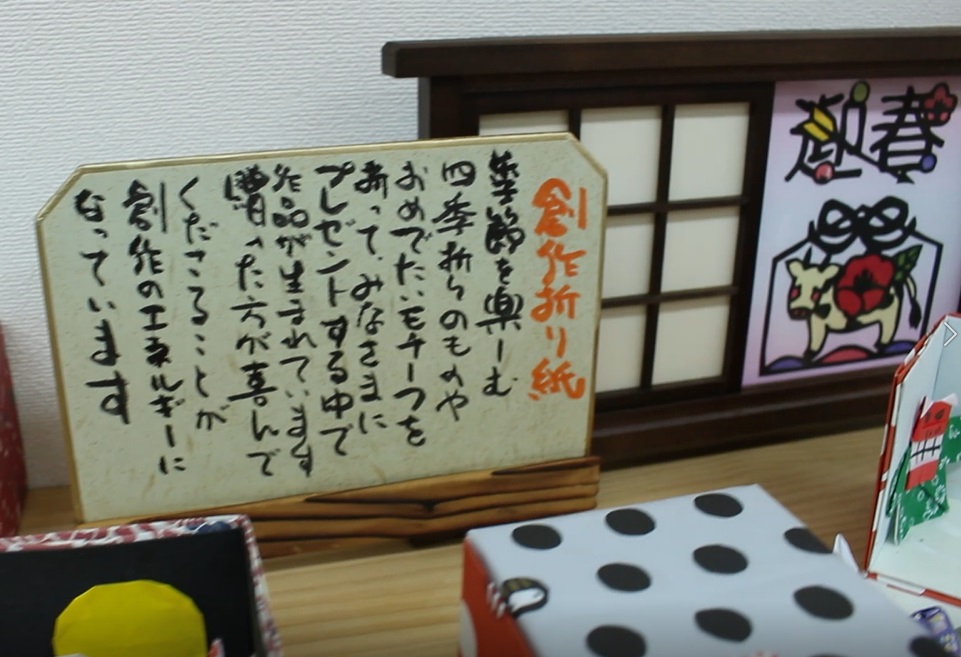 創作折り紙
季節を楽しむ
四季折々のものや
おめでたいモチーフを
折って、みなさまに
プレゼントする中で
作品が生まれています
贈った方が喜んで
くださることが
創作のエネルギーに
なっています
迎春